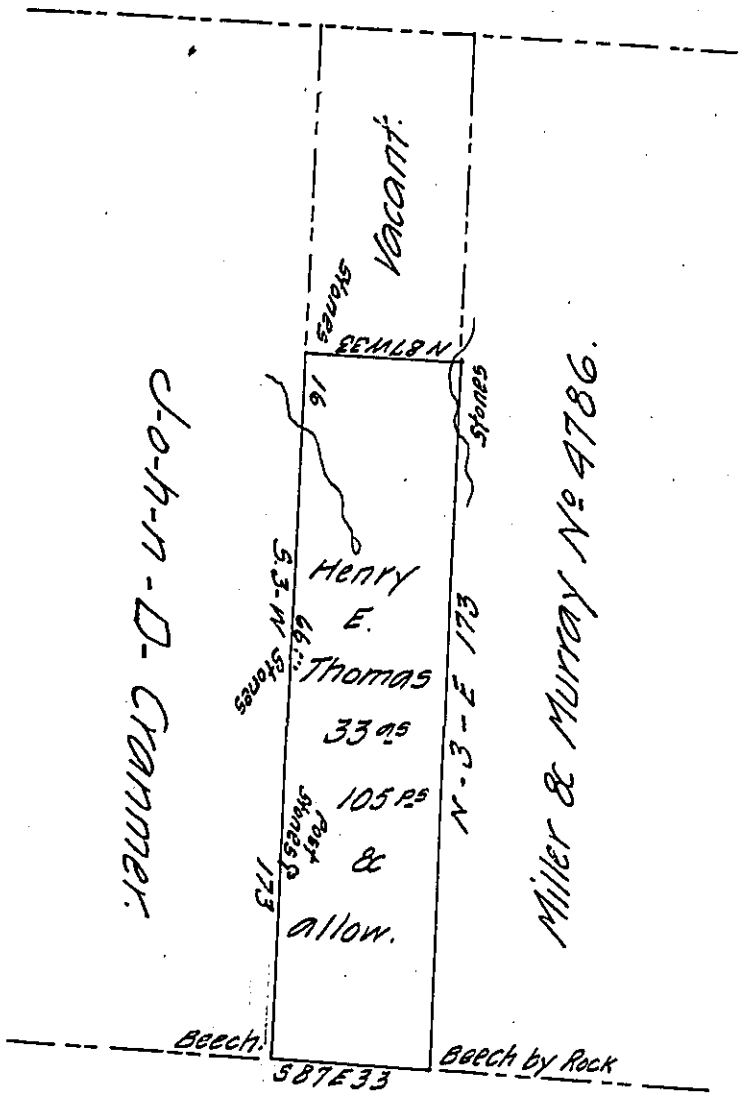 Vacant.
Stones
N 87 W 33
Stones
16
J-o-h-n - D - Cranmer.
S. 3 - W
66
Stones
Henry
E.
Thomas
33 as
105 ps
&
allow.
N - 3 - E 173
Miller & Murray No 4786.
Post
Stones
173
Beech.
S 87 E 33
Beech by Rock